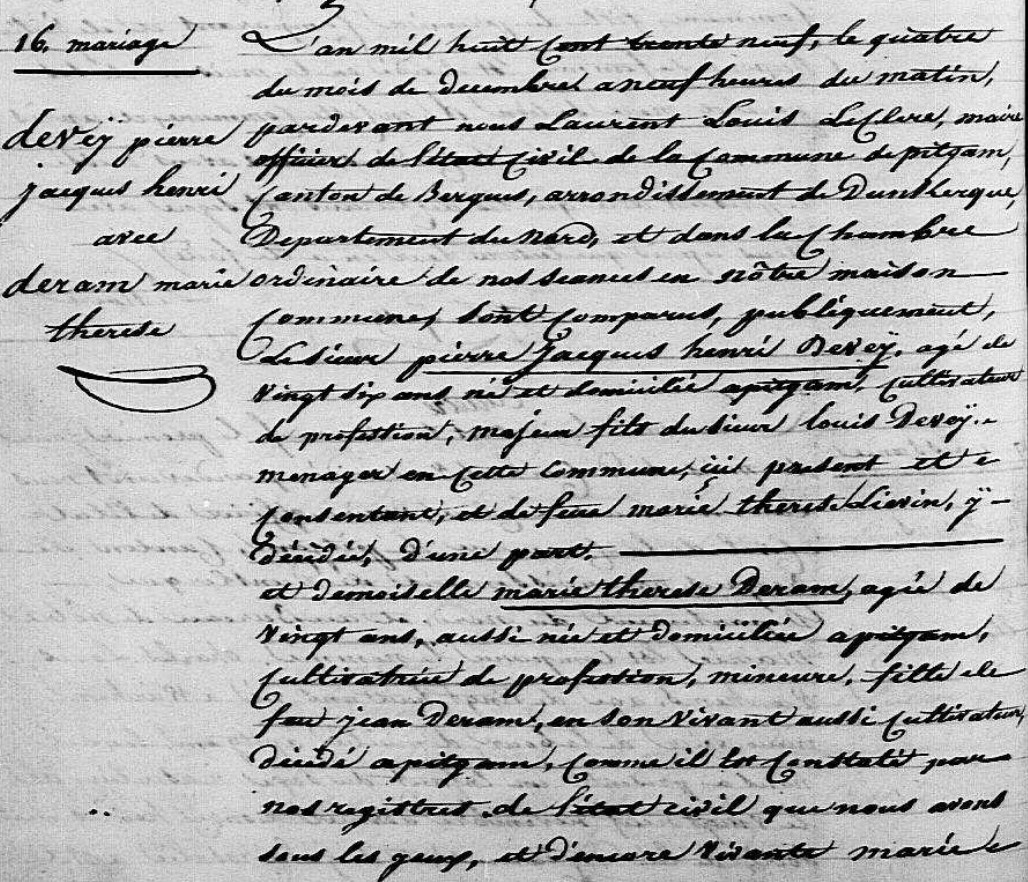 16. mariage
devëÿ pierre
jacques henri
avec
deram marie
therese
L'an mil huit Cent trente neuf, le quatre
du mois de decembre a neuf heures du matin,
pardevant nous Laurent Louis LeClerc, maire
officier de l'état Civil de la Commune de pitgam,
Canton de Bergues, arrondissement de Dunkerque,
Departement du Nord, et dans la Chambre
ordinaire de nos seances en nôtre maison
Commune, sont Comparus, publiquement,
Le sieur pierre Jacques henri Devëÿ, agé de
Vingt six ans né et domicilié a pitgam, Cultivateur
de profession, majeur fils du sieur louis Devëÿ
menager en Cette Commune, içi present et
Consentant, et de feue marie therese Lievin, ÿ
décédée, d'une part.
et demoiselle marie therese Deram, agée de
Vingt ans, aussi née et domiciliée a pitgam,
Cultivatrice de profession, mineure, fille de
feu jean Deram, en son vivant aussi Cultivateur
décédé a pitgam, Comme il est Constaté par
nos registres de l'état civil que nous avons
sous les yeux, et d'encore Vivante marie